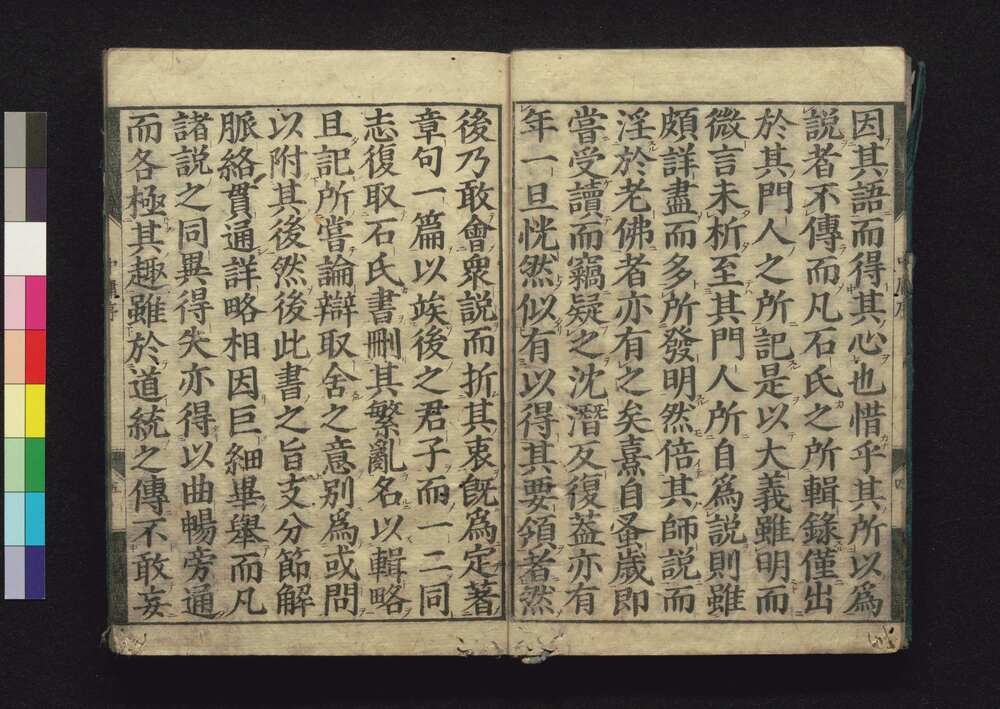 因其語而得其心也惜乎其所以爲
説者不傳而凡石氏之所輯錄僅出
於其門人之所記是以大義雖明而
微言未析至其門人所自爲説則雖
頗詳盡而多所發明然倍其師説而
淫於老佛者亦有之矣熹自蚤歲即
嘗受讀而竊疑之沈潛反復葢亦有
年一旦恍然似有以得其要領者然
後乃敢會衆説而折其衷旣爲定著
章句一篇以竢後之君子而一二同
志復取石氏書刪其繁亂名以輯略
且記所嘗論辯取舍之意別爲或問
以附其後然後此書之旨支分節解
脈絡貫通詳略相因巨細畢舉而凡
諸説之同異得失亦得以曲暢旁通
而各極其趣雖於道統之傳不敢妄